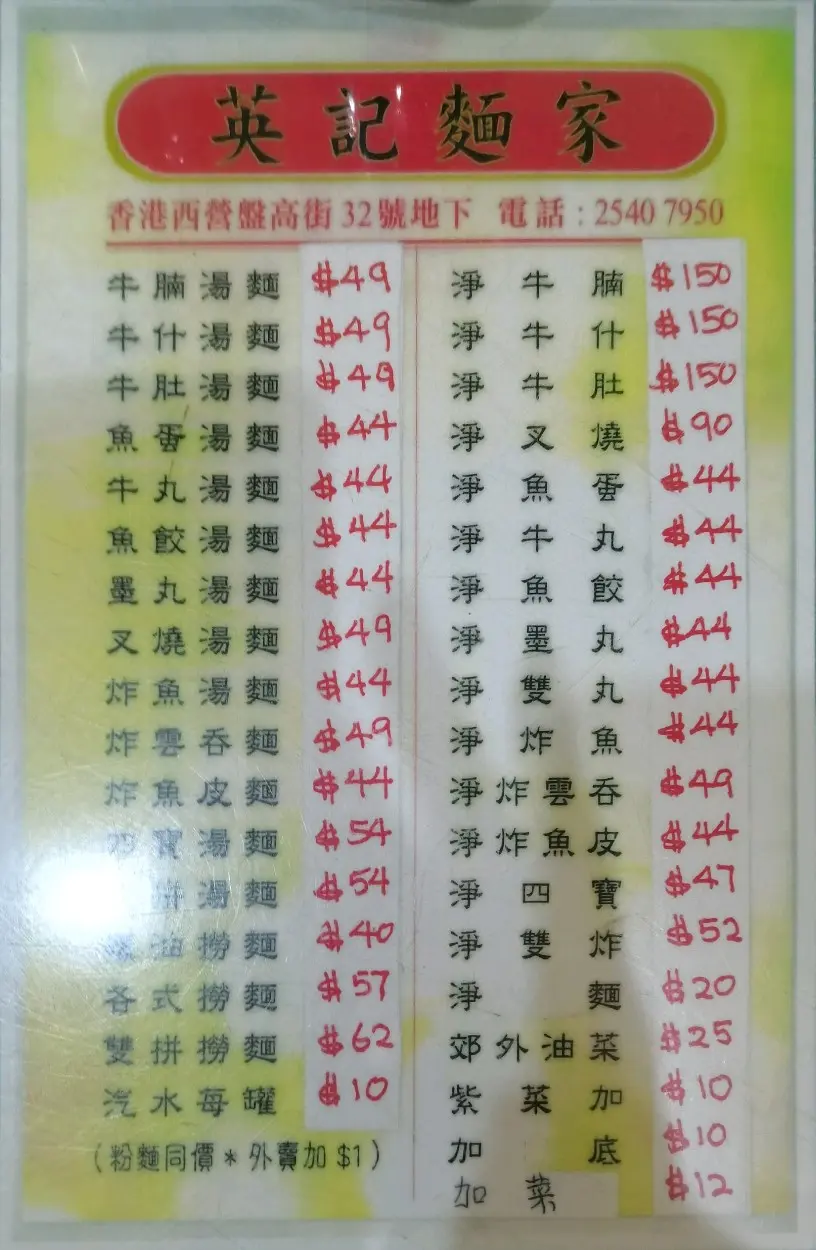 英記麵家
香港西營盤高街32號地下 電話:2540 7950
牛腩湯麵 $49
牛什湯麵 $49
牛肚湯麵 $49
魚蛋湯麵 $44
牛丸湯麵 $44
魚餃湯麵 $44
墨丸湯麵 $44
叉燒湯麵 $49
炸魚湯麵 $44
炸雲吞麵 $49
炸魚皮麵 $44
四寶湯麵 $54
拼湯麵 $54
油撈麵 $40
各式撈麵 $57
雙拼撈麵 $62
汽水每罐 $10
(粉麵同價*外賣加$1)
淨牛腩 $150
淨牛什 $150
淨牛肚 $150
淨叉燒 $90
淨魚蛋 $44
淨牛丸 $44
淨魚餃 $44
淨墨丸 $44
淨雙丸 $44
淨炸魚 $44
淨炸雲吞 $49
淨炸魚皮 $44
淨四寶 $47
淨雙炸 $52
淨麵 $20
郊外油菜 $25
紫菜加 $10
加底 $10
加菜 $12